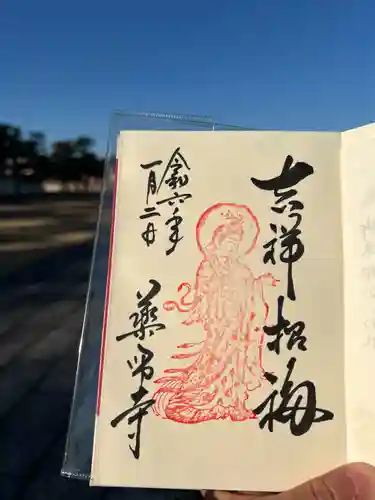 吉祥招福
令和六年
一月二日
薬师寺